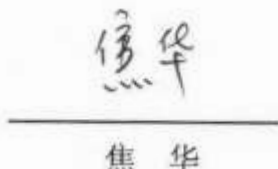 焦华
焦 华